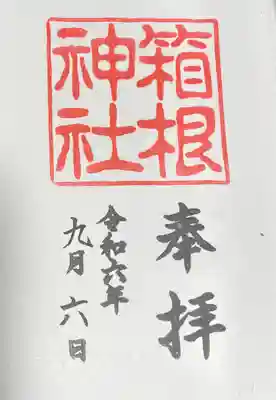 箱根
神社
奉拝
令和六年
九月六日